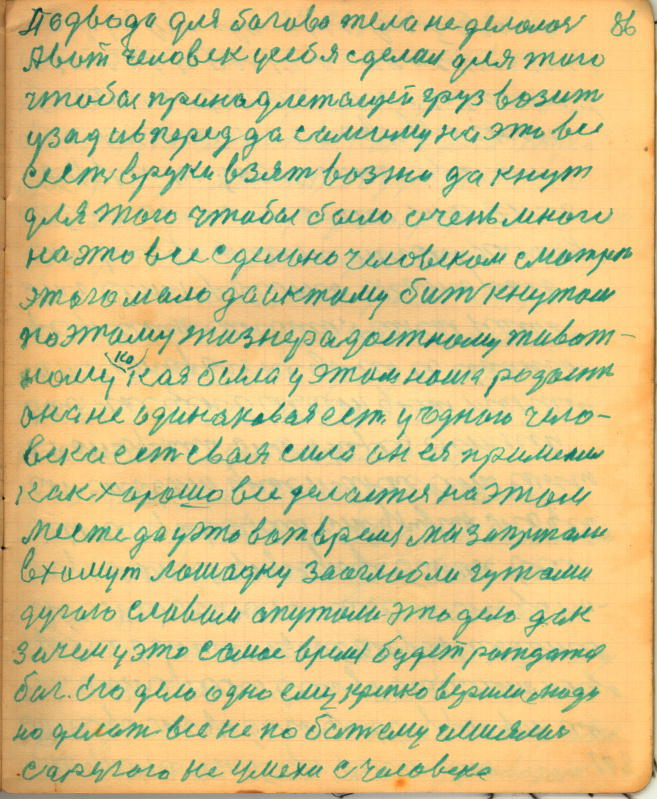 86
Подвода для богова тела не делалася
А вот человек у себя сделал для того
чтобы принадлежащей груз возит
узад ивперед да самому на это все
сест вруки взят возжи да кнут
для того чтобы было очень много
на это все сдельно человеком смотрет
этого мало да ик тому бит кнутом
по этому жизнерадостному живот-
ному какая была у этом наша родост
она не одинаковая ест. у одного чело-
века ест свая сила он ея применил
Как хорошо все делается на этом
месте да у это вот время мы запрягали
вхомут лошадку заоглобли гужами
дугою словом опутали это дело дак
зачем у это самое время будет рождатся
бог. Его дело одно ему крепко верили люди
но делат все не по божему
с другого не умехи с человека